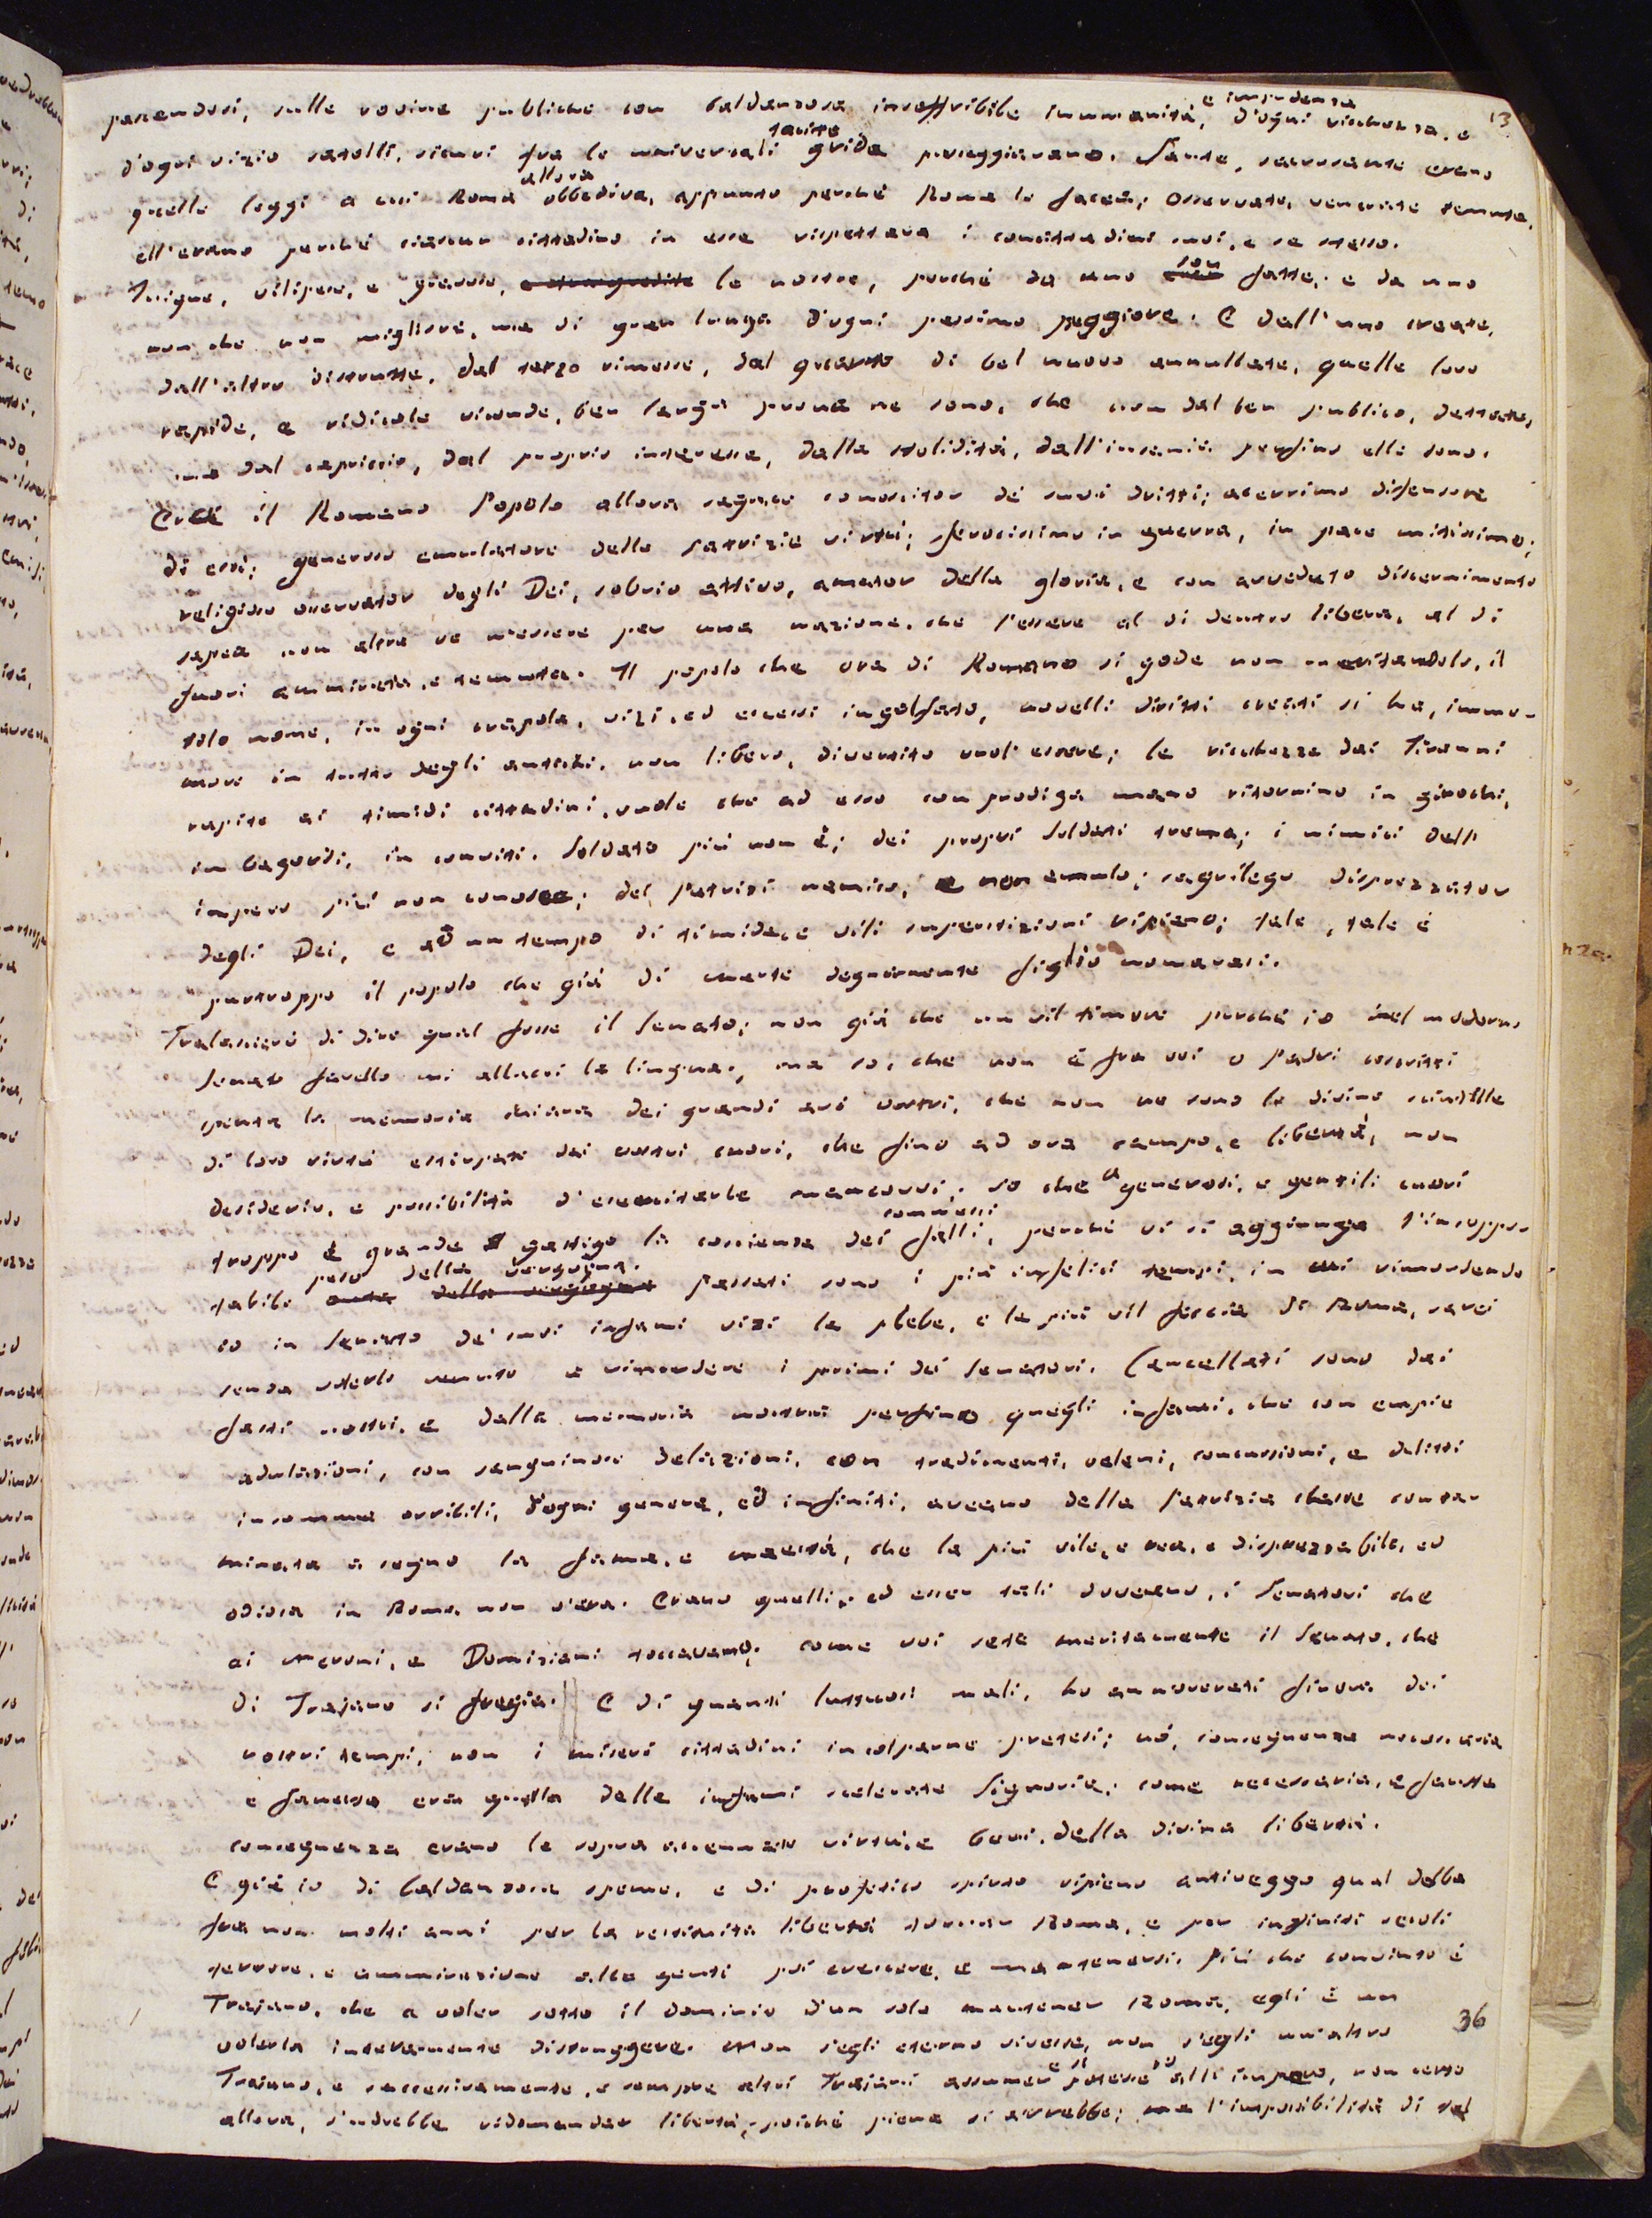 13
pascendosi, sulle rovine publiche con baldanzosa insoffribile inumanità, e impudenza d'ogni ricchezza, e
d'ogni vizio satolli, sicuri fra le universali tacite grida passeggiavano. Sante, sacrosante erano
quelle leggi a cui Roma allora obbediva, appunto perchè Roma le facea; osservate, venerate temute,
ell'erano perchè ciascun cittadino in esse rispettava i concittadini suoi, e se stesso.
Inique, vilipese, e giuoco, e trasgredite le nostre, perchè da uno son fatte; e da uno
non che non migliore, ma di gran lunga d'ogni pessimo peggiore. E dall'uno create,
dall'altro distrutte, dal terzo rimesse, dal quarto di bel nuovo annullate, quelle loro
rapide, e ridicole vicende, ben larga prova ne sono, che non dal ben publico, dettate,
ma dal capriccio, dal proprio interesse, dalla stolidità, dall'insania perfino elle sono.
Era il Romano Popolo allora sagace conoscitor dei suoi dritti; acerrimo difensore
di essi; generoso emulatore delle patrizie virtù; ferocissimo in guerra, in pace mitissimo;
religioso osservator degli Dei, sobrio attivo, amator della gloria, e con avveduto discernimento
sapea non altra ve n'essere per una nazione, che l'essere al di dentro libera, al di
fuori ammirata, e temuta. Il popolo che ora di Romano si gode non meritandolo, il
solo nome, in ogni crapola, vizi, ed eccessi ingolfato, novelli diritti creati si ha, immu-
mori in tutto degli antichi, non libero, divertito vuol essere; le ricchezze dai Tiranni
rapite ai timidi cittadini, vuole che ad esso con prodiga mano ritornino in giuochi,
in bagordi, in conviti. Soldato più non è; dei propri soldati trema; i nimici dell
impero più non conosce; dei Patrizi nemico, e non emulo; sagrilego disprezzator
degli Dei, e ad un tempo di timida, e vili superstizioni ripieno; tale, tale è
purtroppo il popolo che già di Marte degnamente figlio nomavasi.
Tralascierò di dire qual fosse il Senato; non già che un vil timore perchè io nel moderno
senato favello mi allacci la lingua; ma so, che non è fra voi o Padri coscritti
spenta la memoria chiara dei grandi avi vostri, che non ne sono le divine scintille
di loro virtù estirpate dai vostri cuori, che fino ad ora campo, e libertà, non
desiderio, e possibilità d'esercitarle mancovvi; so che a generosi, e gentili cuori
troppo è grande gastigo la coscienza dei commessi falli, perchè vi si aggiunga l'insuppor-
tabile peso della vergogna. Passati sono i più infelici tempi, in cui rimordendo
io in Senato de' suoi infami vizi la plebe, e la più vil feccia di Roma, sarei
senza volerlo venuto a rimordere i primi dei Senatori. Cancellati sono dai
fasti nostri, e dalla memoria nostra perfino quegli infami, che con empie
adulazioni, con sanguinose delazioni, con tradimenti, veleni, concussioni, e delitti
in somma orribili, d'ogni genere, ed infiniti, aveano della Patrizia classe conta-
minata a segno la fama, e maestà, che la più vile, e rea, e disprezzabile, ed
odiosa in Roma non v'era. Erano quelli, ed esser tali doveano, i Senatori che
ai Neroni, e Domiziani toccavano; come voi sete meritamente il Senato, che
di Trajano si fregia. E di quanti luttuosi mali, ho annoverati finora dei
nostri tempi, non i miseri cittadini incolparne pretesi; nò, conseguenza necessaria
e funesta era quella delle infami scelerate Signorie; come necessaria, e fausta
conseguenza erano le sopra accennate virtù, e beni, della divina libertà.
E già io di baldanzosa speme, e di profetico spirto ripieno antiveggo qual debba
fra non molti anni per la restituita libertà tornar Roma, e per infiniti secoli
terrore, e ammirazione alle genti poi crescere, e mantenersi. Più che convinto è
Trajano, che a voler sotto il dominio d'un solo mantener Roma, egli è un
volerla interamente distruggere. Non s'egli eterno vivesse, non s'egli un'altro
Trajano, e successivamente, e sempre altri Trajani assumer si potesse all'impero, non certo
allora, s'udrebbe ridomandar libertà, poichè piena si avrebbe; ma l'impossibilità di tal
36